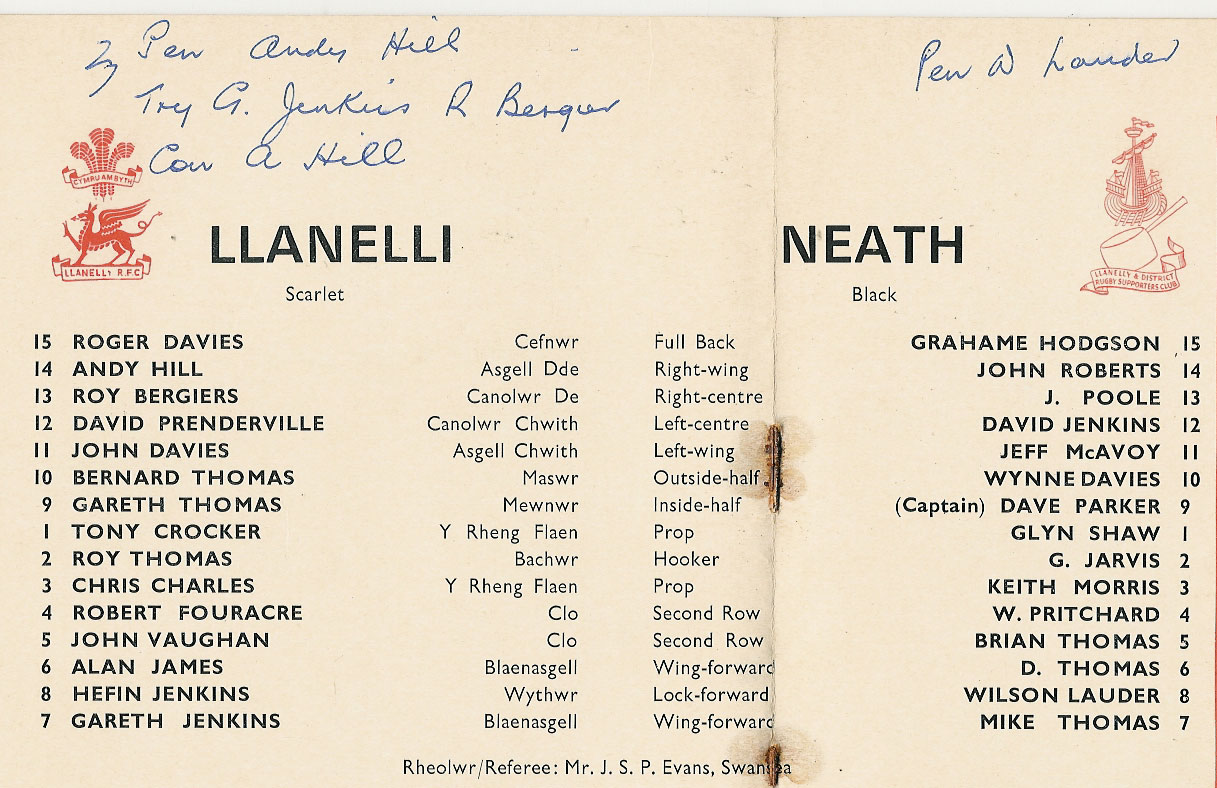 2 Pen Andy Hill
Try G. Jenkins R Bergier
Con A Hill
Pen W Lauder
CYMRU AM BYTH
LLANELLY R.F.C
LLANELLY & DISTRICT
RUGBY SUPPORTERS CLUB
LLANELLI NEATH
Scarlet Black
15 ROGER DAVIES Cefnwr Full Back GRAHAME HODGSON 15
14 ANDY HILL Asgell Dde Right-wing JOHN ROBERTS 14
13 ROY BERGIERS Canolwr De Right-centre J. POOLE 13
12 DAVID PRENDERVILLE Canolwr Chwith Left-centre DAVID JENKINS 12
11 JOHN DAVIES Asgell Chwith Left-wing JEFF McAVOY 11
10 BERNARD THOMAS Maswr Outside-half WYNNE DAVIES 10
9 GARETH THOMAS Mewnwr Inside-half (Captain) DAVE PARKER 9
1 TONY CROCKER Y Rheng Flaen Prop GLYN SHAW 1
2 ROY THOMAS Bachwr Hooker G. JARVIS 2
3 CHRIS CHARLES Y Rheng Flaen Prop KEITH MORRIS 3
4 ROBERT FOURACRE Clo Second Row W. PRITCHARD 4
5 JOHN VAUGHAN Clo Second Row BRIAN THOMAS 5
6 ALAN JAMES Blaenasgell Wing-forward D. THOMAS 6
8 HEFIN JENKINS Wythwr Lock-forward WILSON LAUDER 8
7 GARETH JENKINS Blaenasgell Wing-forward MIKE THOMAS 7
Rheolwr/Referee: Mr. J. S. P. Evans, Swansea